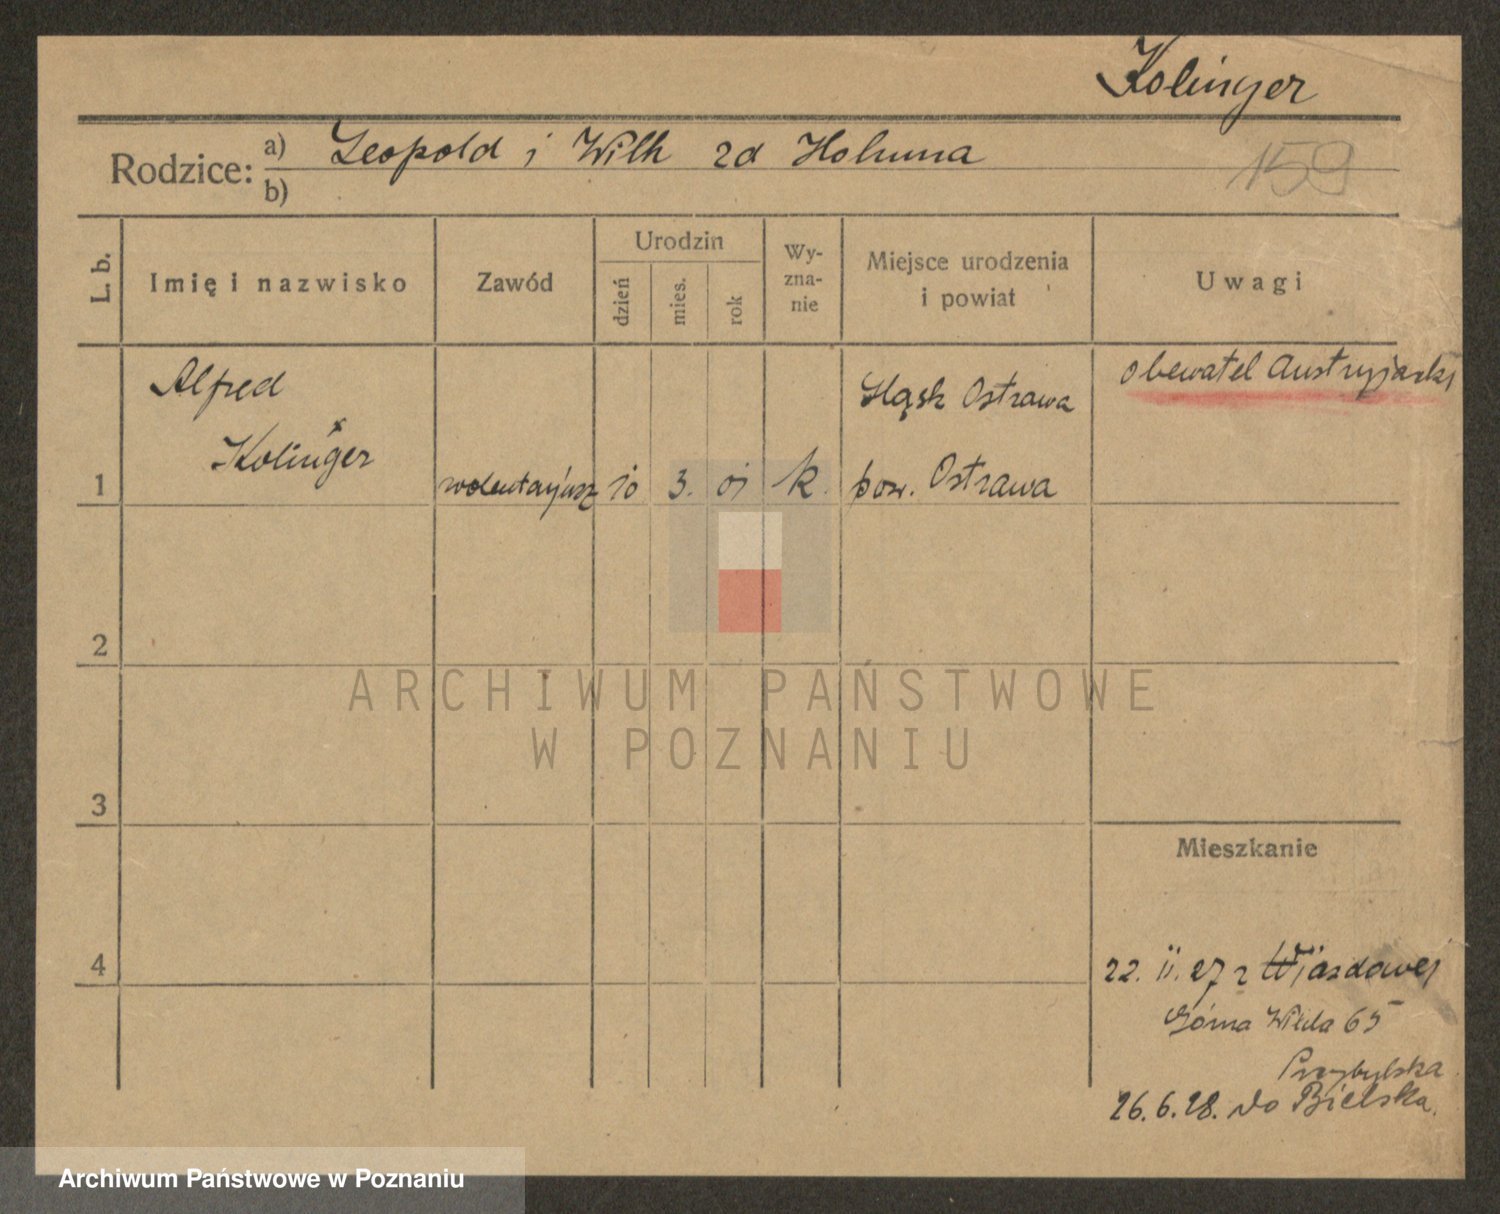 Kolinger
Rodzice:
a) Leopold i Wilh zd Holuma
b)
159
L. b.
Imię i nazwisko
Zawód
Urodzin
dzień
mies.
rok
Wy-
zna-
nie
Miejsce urodzenia
i powiat
Uwagi
1
Alfred
Kolinger
wolentarjusz
10
3.
01
k.
Śląsk Ostrawa
pow. Ostrawa
obewatel Austryjacki
2
3
4
ARCHIWUM PAŃSTWOWE
W POZNANIU
Mieszkanie
22. 11. 27 z
Górna Wilda 65
Przybylska
26.6.28. do Bielska.
Archiwum Państwowe w Poznaniu